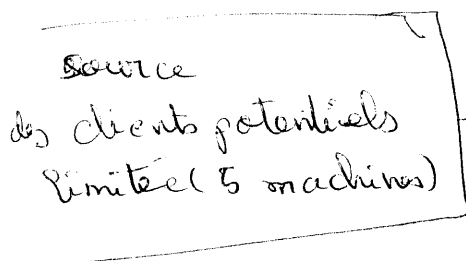 source
des clients potentiels
limitée (5 machines)